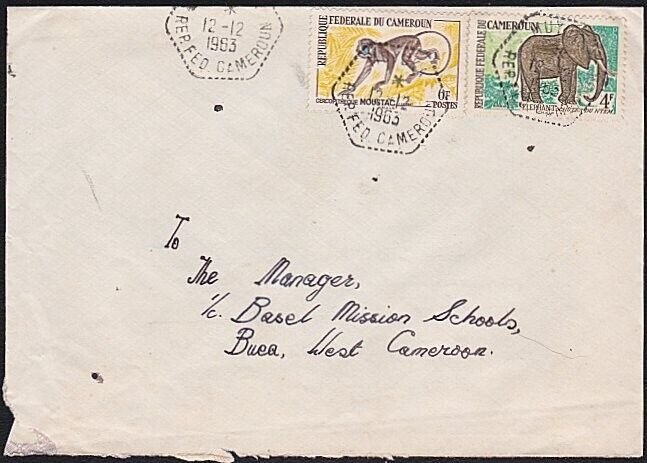 12-12
1963
REP. FED. CAMEROUN
REPUBLIQUE FEDERALE DU CAMEROUN
CERCOPITHEQUE MOUSTAC
6F
POSTES
12-12
1963
REP. FED. CAMEROUN
REPUBLIQUE FEDERALE DU CAMEROUN
ELEPHANT
4F
To
The Manager,
1/c. Basel Mission Schools,
Buea, West Cameroon.